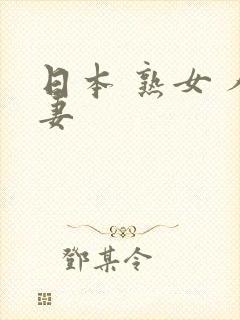 日本 熟女 人
妻
鄧某令